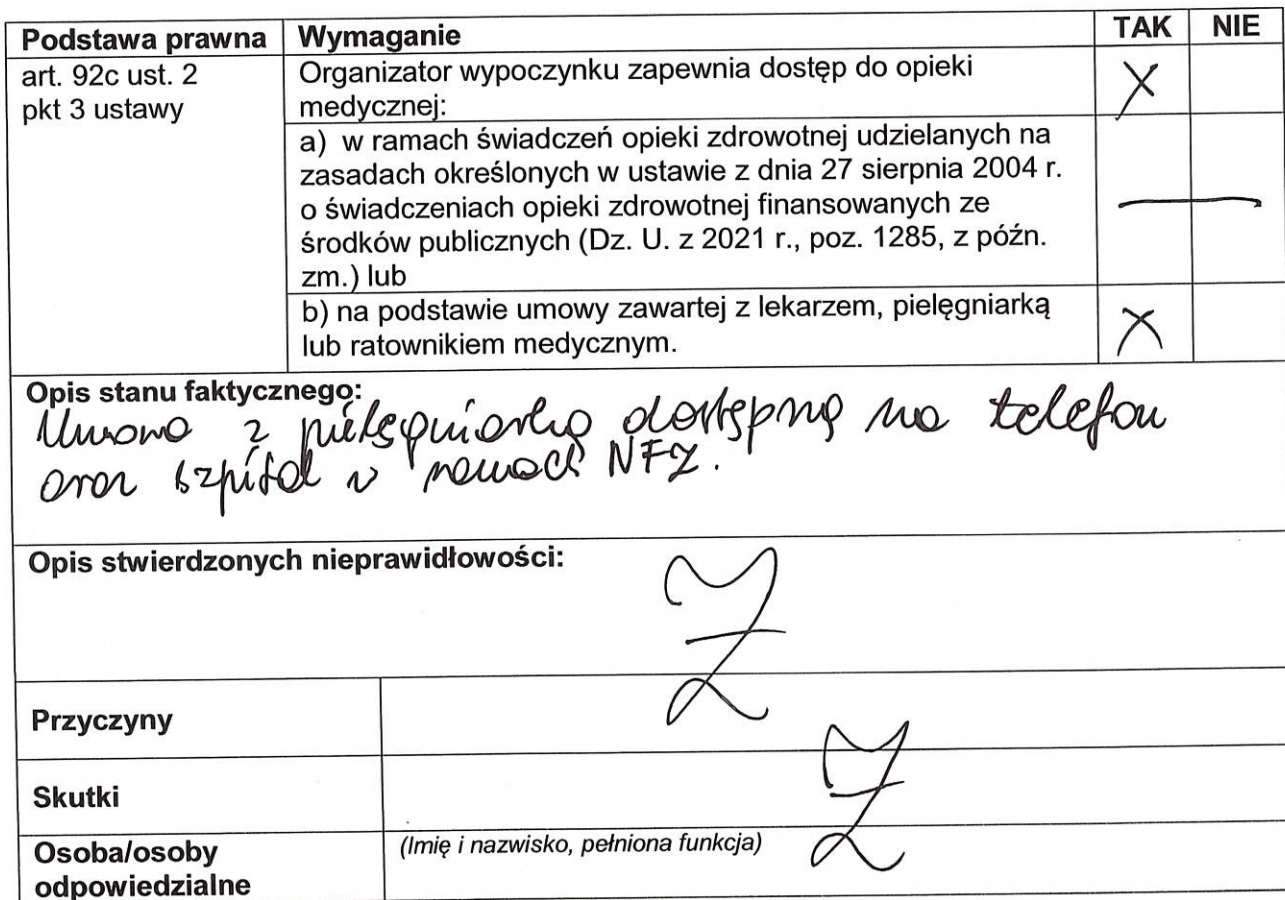 Podstawa prawna Wymaganie TAK NIE
art. 92c ust. 2 Organizator wypoczynku zapewnia dostęp do opieki
pkt 3 ustawy medycznej: X
a) w ramach świadczeń opieki zdrowotnej udzielanych na
zasadach określonych w ustawie z dnia 27 sierpnia 2004 r.
o świadczeniach opieki zdrowotnej finansowanych ze
środków publicznych (Dz. U. z 2021 r., poz. 1285, z późn.
zm.) lub
b) na podstawie umowy zawartej z lekarzem, pielęgniarką
lub ratownikiem medycznym. X
Opis stanu faktycznego:
Umowa z pielęgniarką dostępną na telefon
oraz szpital w ramach NFZ.
Opis stwierdzonych nieprawidłowości:
Z
Przyczyny
Skutki
Z
Osoba/osoby (Imię i nazwisko, pełniona funkcja)
odpowiedzialne